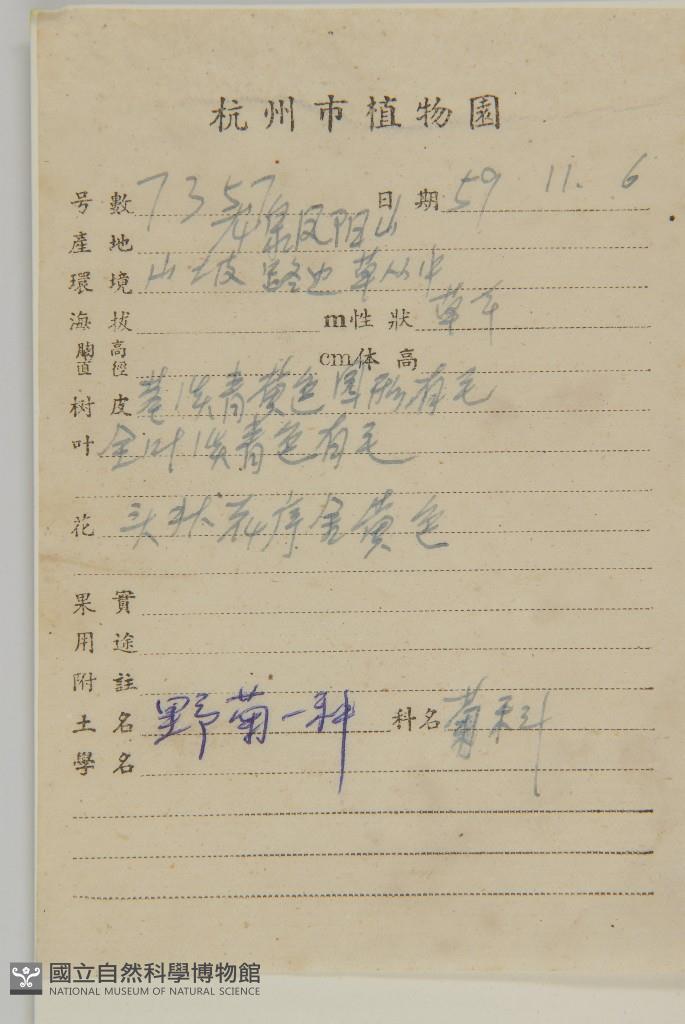 杭州市植物園
号數 7357 日期 59 11. 6
產地 龙泉凤阳山
環境 山坡路边草丛中
海拔 m性狀 草本
胸高直徑 cm体高
树皮 茎淡青黄色圆形有毛
叶 全叶淡青色有毛
花 头状花序金黄色
果實
用途
附註
土名 野菊一种 科名 菊科
學名
國立自然科學博物館
NATIONAL MUSEUM OF NATURAL SCIENCE